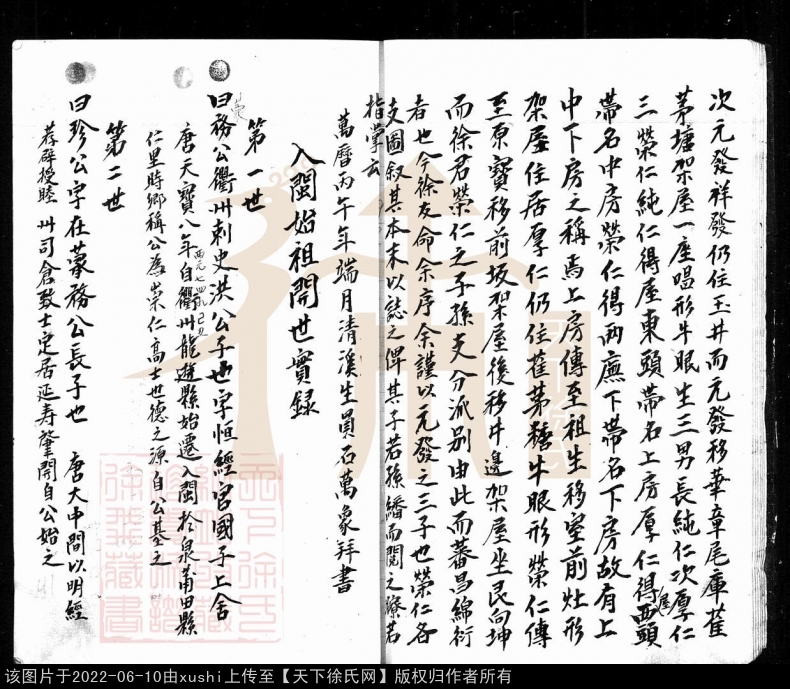 次元發祥發仍住玉井而元發移華章尾庫萑
茅塘架屋一座唱形牛眼生三男長純仁次厚仁
三榮仁純仁得屋東頭帶名上房厚仁得西頭
帶名中房榮仁得兩廡下帶名下房故有上
中下房之稱焉上房傳至祖生移室前灶形
架屋住居厚仁仍住萑茅塘牛眼形榮仁傳
至原寶移前坂架屋後移井邊架屋坐艮向坤
而徐君榮仁之子孫支分派別由此而蕃昌綿衍
者也今徐友命余序余謹以元發之三子也榮仁各
支圖叙其本末以誌之俾其子若孫繙而閱之瞭若
指掌云
萬曆丙午年端月清溪生員石萬象拜書
入閩始祖開世實録
第一世
曰務公衢州刺史洪公子也字恒經官國子上舍
唐天寶八年自衢州龍遊縣始遷入閩於泉莆田縣
西元七四九己丑
仁里時鄉稱公為崇仁高士世德之源自公基之
第二世
曰珍公字在蒙務公長子也 唐大中間以明經
荐辟授睦州司倉致士定居延寿肇開自公始之
天下徐氏
徐氏藏書
该图片于2022-06-10由xushi上传至【天下徐氏网】版权归作者所有